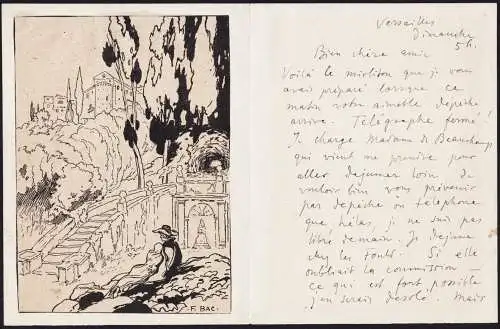 F. BAC.
Versailles
Dimanche
5 h.
Bien chère amie
Voilà le mirliton que je vous
avais préparé lorsque ce
matin votre aimable dépêche
arrive. Télégraphe fermé!
Je charge Madame de Beauchamp
qui vient me prendre pour
aller déjeuner loin de
vouloir bien vous prévenir
par dépêche ou téléphone
que, hélas, je ne suis pas
libre demain. Je déjeune
chez les
Si elle
oubliait la commission —
ce qui est fort possible
j'en serais désolé. Mais